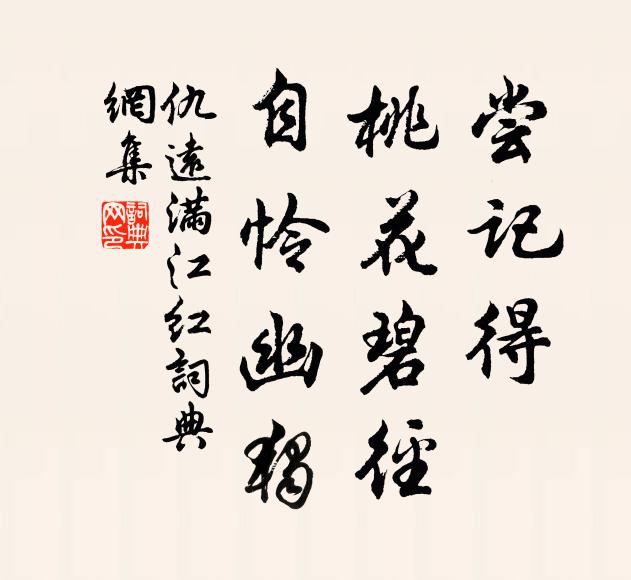 尝记得
桃花碧径
自怜幽独
仇遠满江红詞典
網集
詞典
网印